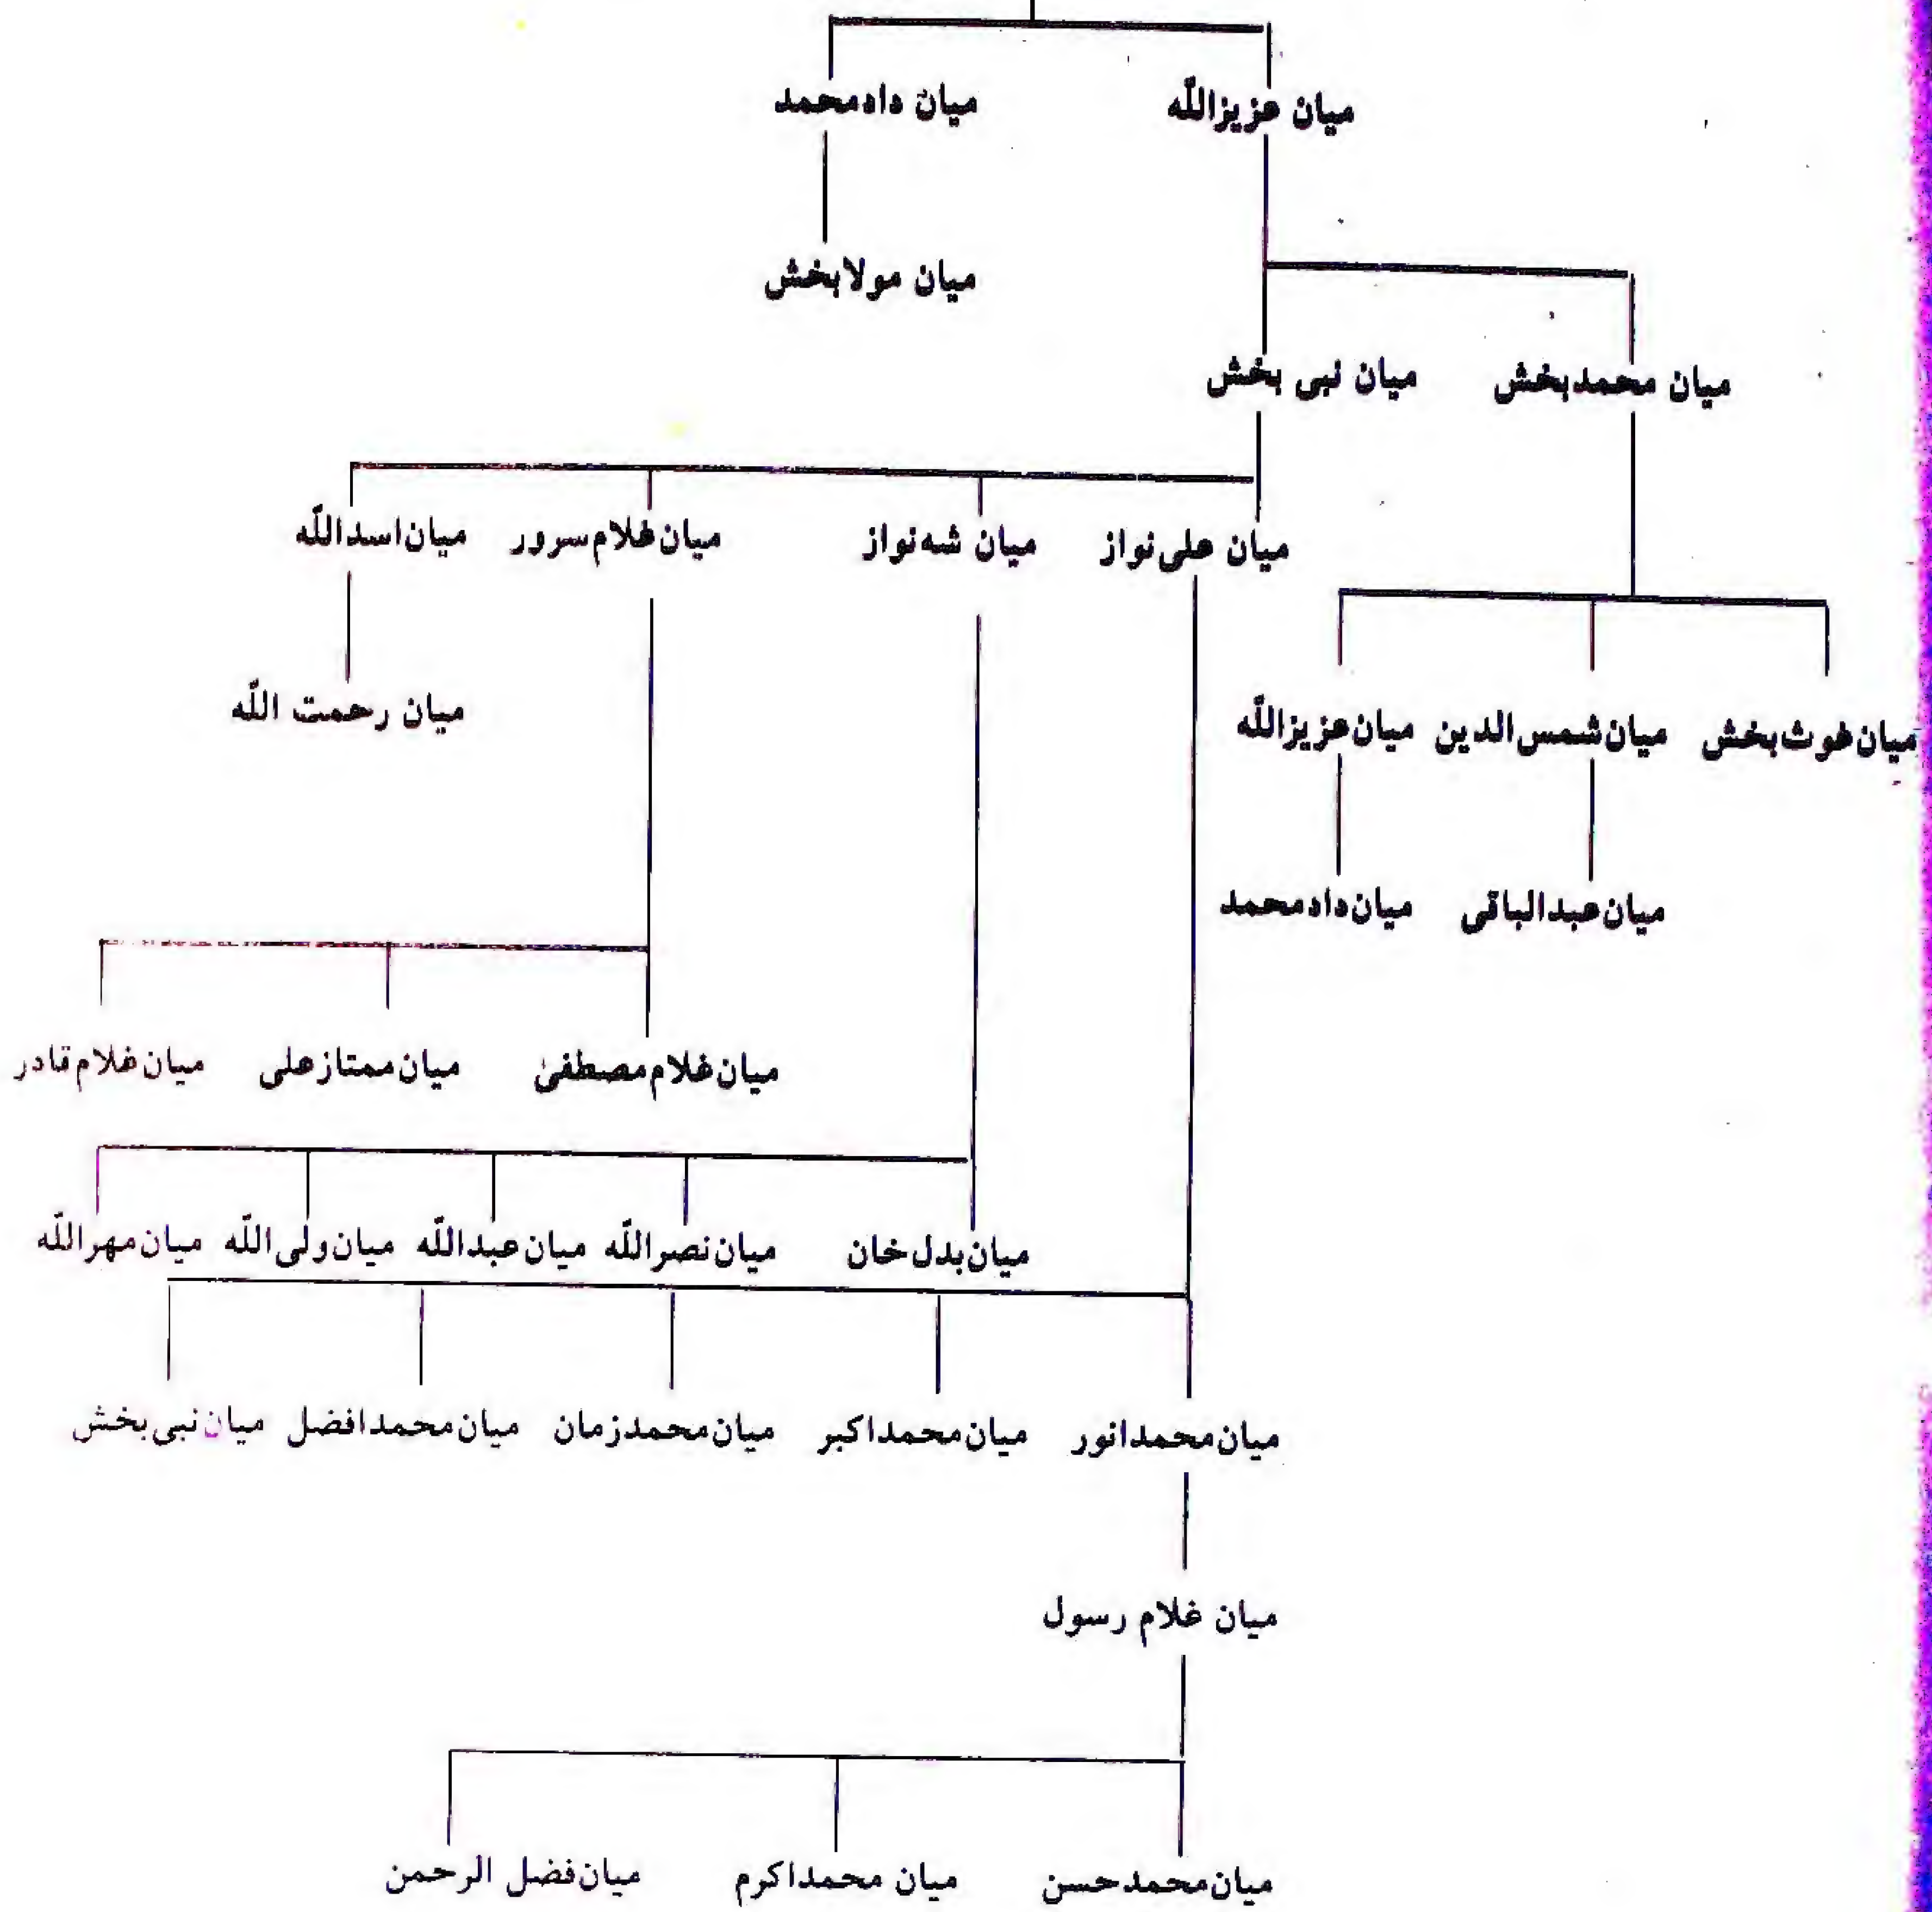 میان عزیزالله میان دادمحمد
میان مولابخش
میان محمدبخش میان نبی بخش
میان علی‌نواز میان شه‌نواز میان‌غلام‌سرور میان‌اسدالله
میان رحمت الله
میان‌غوث‌بخش میان‌شمس‌الدین میان‌عزیزالله
میان‌عبدالباقی میان‌دادمحمد
میان‌غلام‌مصطفیٰ میان‌ممتازعلی میان‌غلام‌قادر
میان‌بدل‌خان میان‌نصرالله میان‌عبدالله میان‌ولی‌الله میان‌مهرالله
میان‌محمدانور میان‌محمداکبر میان‌محمدزمان میان‌محمدافضل میان‌نبی‌بخش
میان غلام رسول
میان‌محمدحسن میان محمداکرم میان‌فضل الرحمن